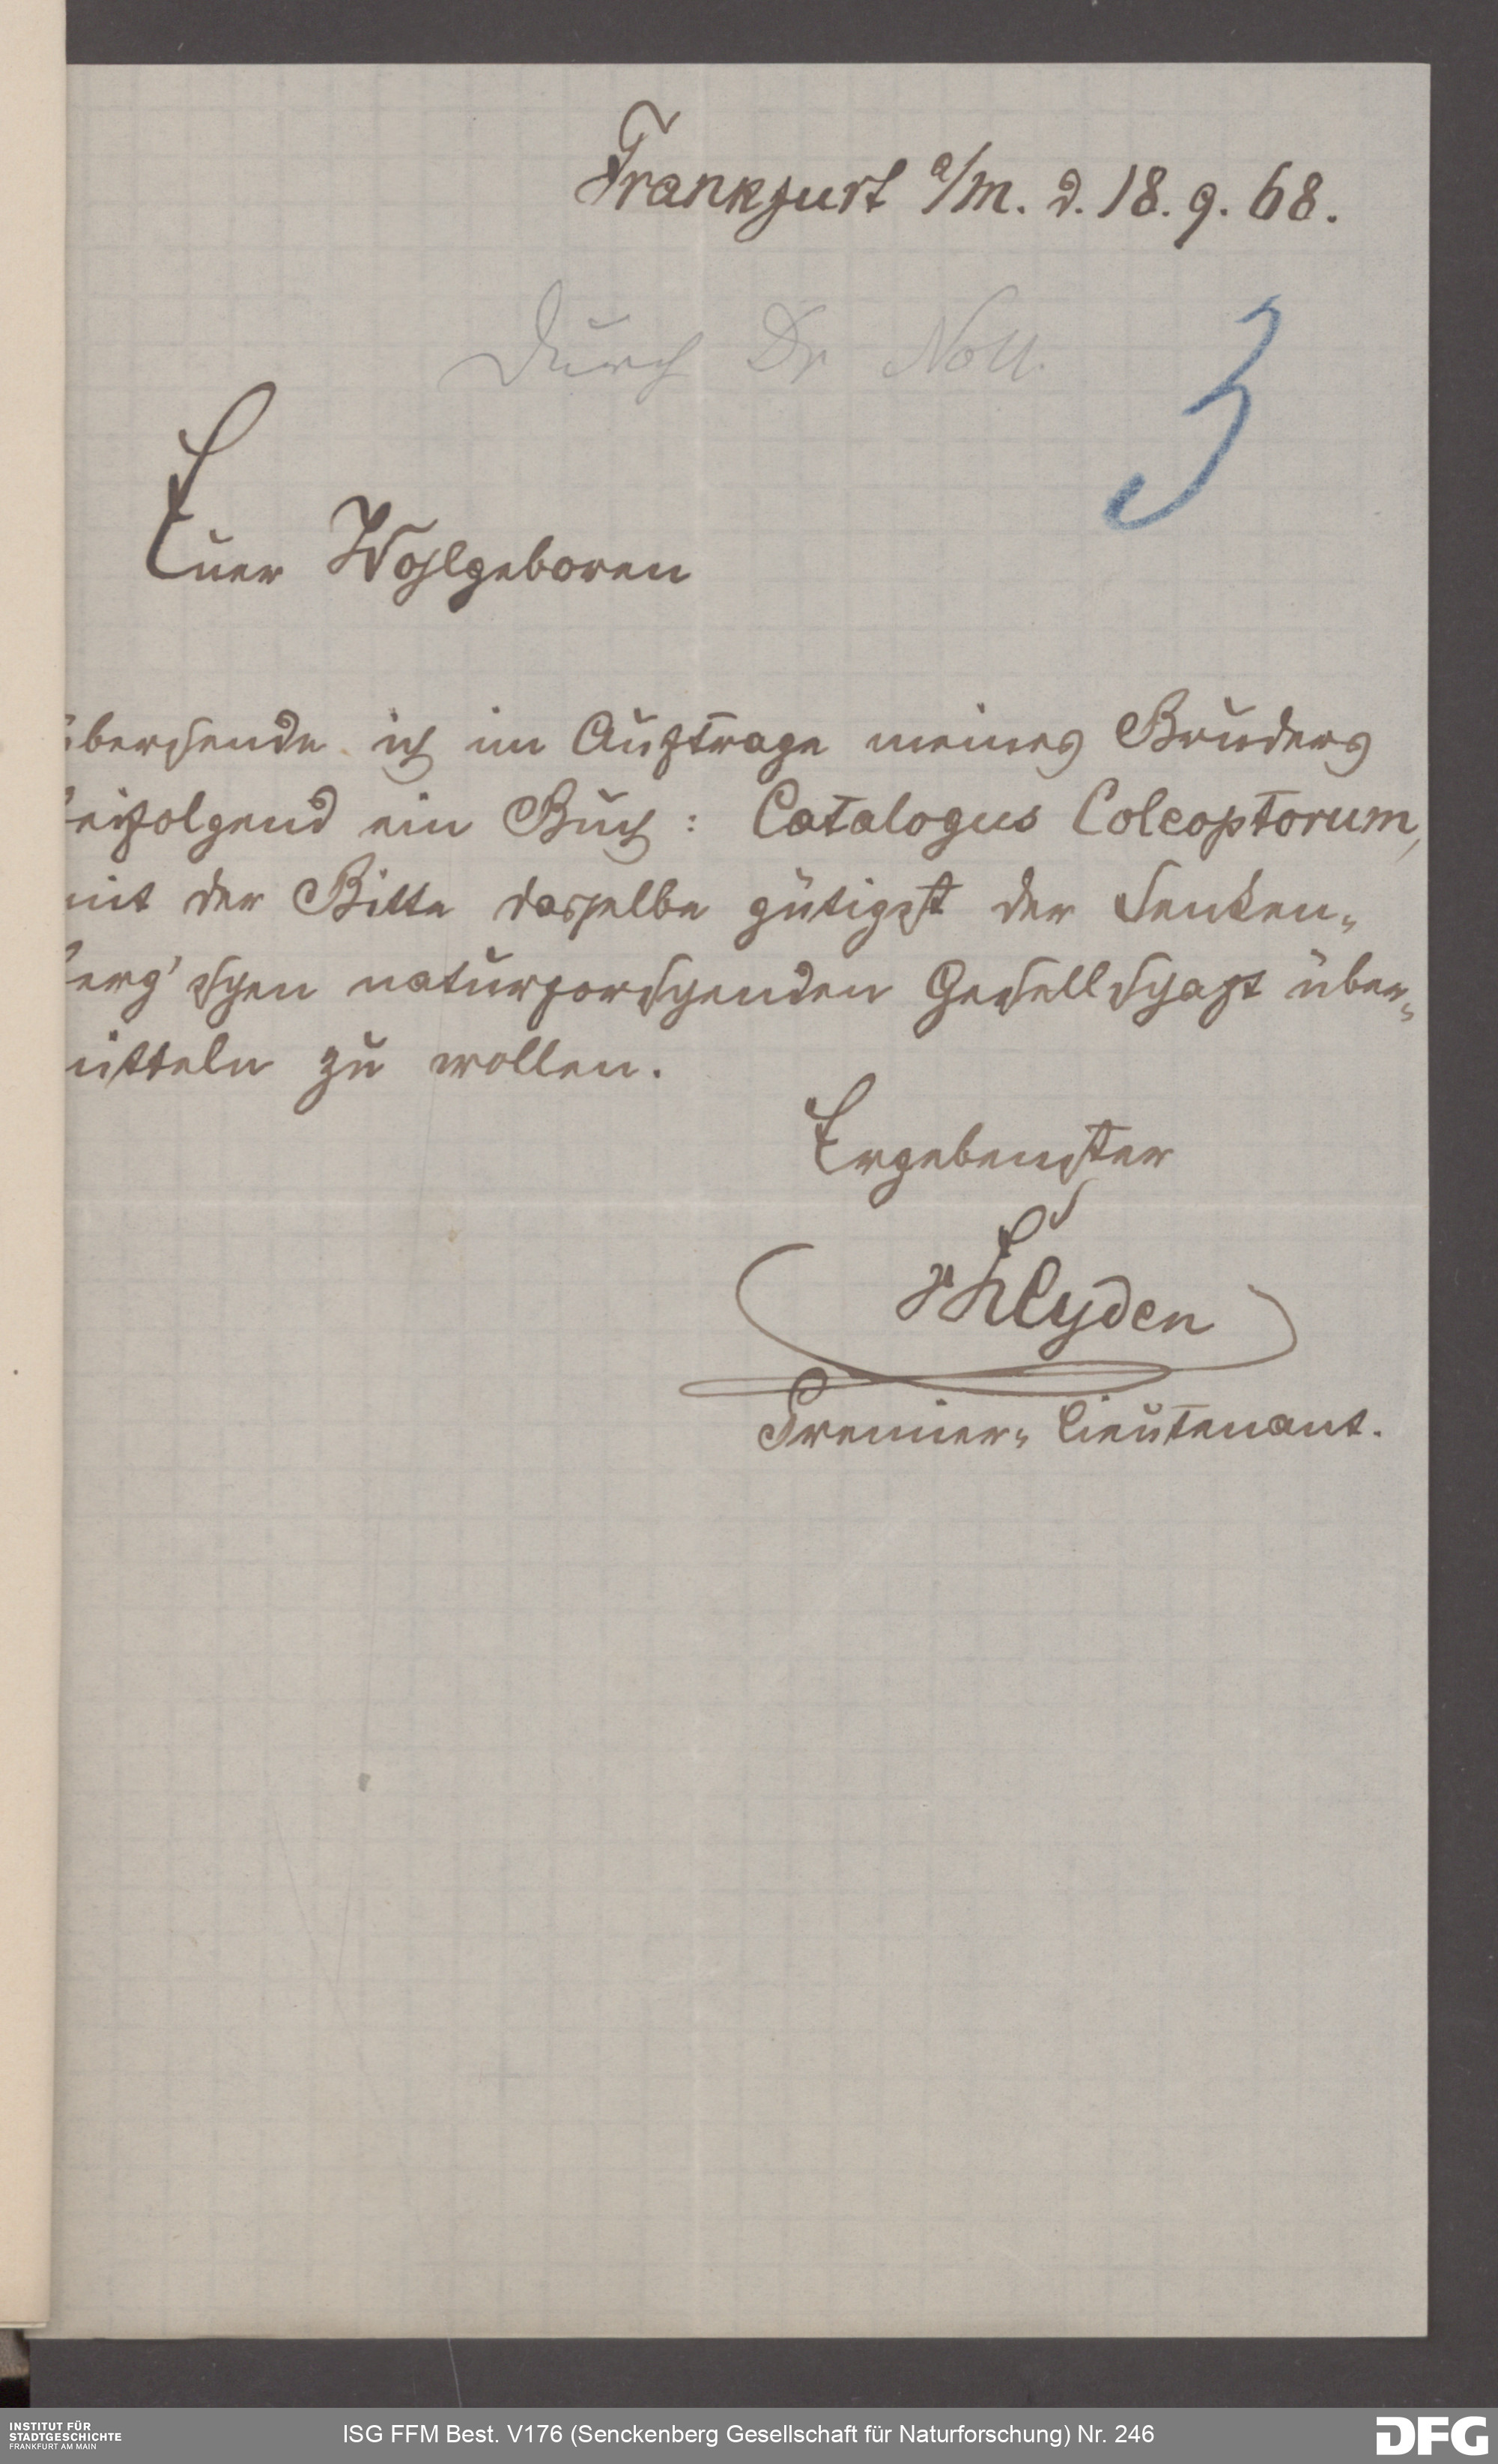 Frankfurt a/M. d. 18. 9. 68.
Durch Dr Noll.
3
Euer Wohlgeboren
übersende ich im Auftrage meines Bruders
beifolgend ein Buch: Catalogus Coleoptorum,
mit der Bitte dasselbe gütigst der Senken-
berg'schen naturforschenden Gesellschaft über-
mitteln zu wollen.
Ergebenster
v Heyden
Premier-Lieutenant.
INSTITUT FÜR
STADTGESCHICHTE
FRANKFURT AM MAIN
ISG FFM Best. V176 (Senckenberg Gesellschaft für Naturforschung) Nr. 246
DFG